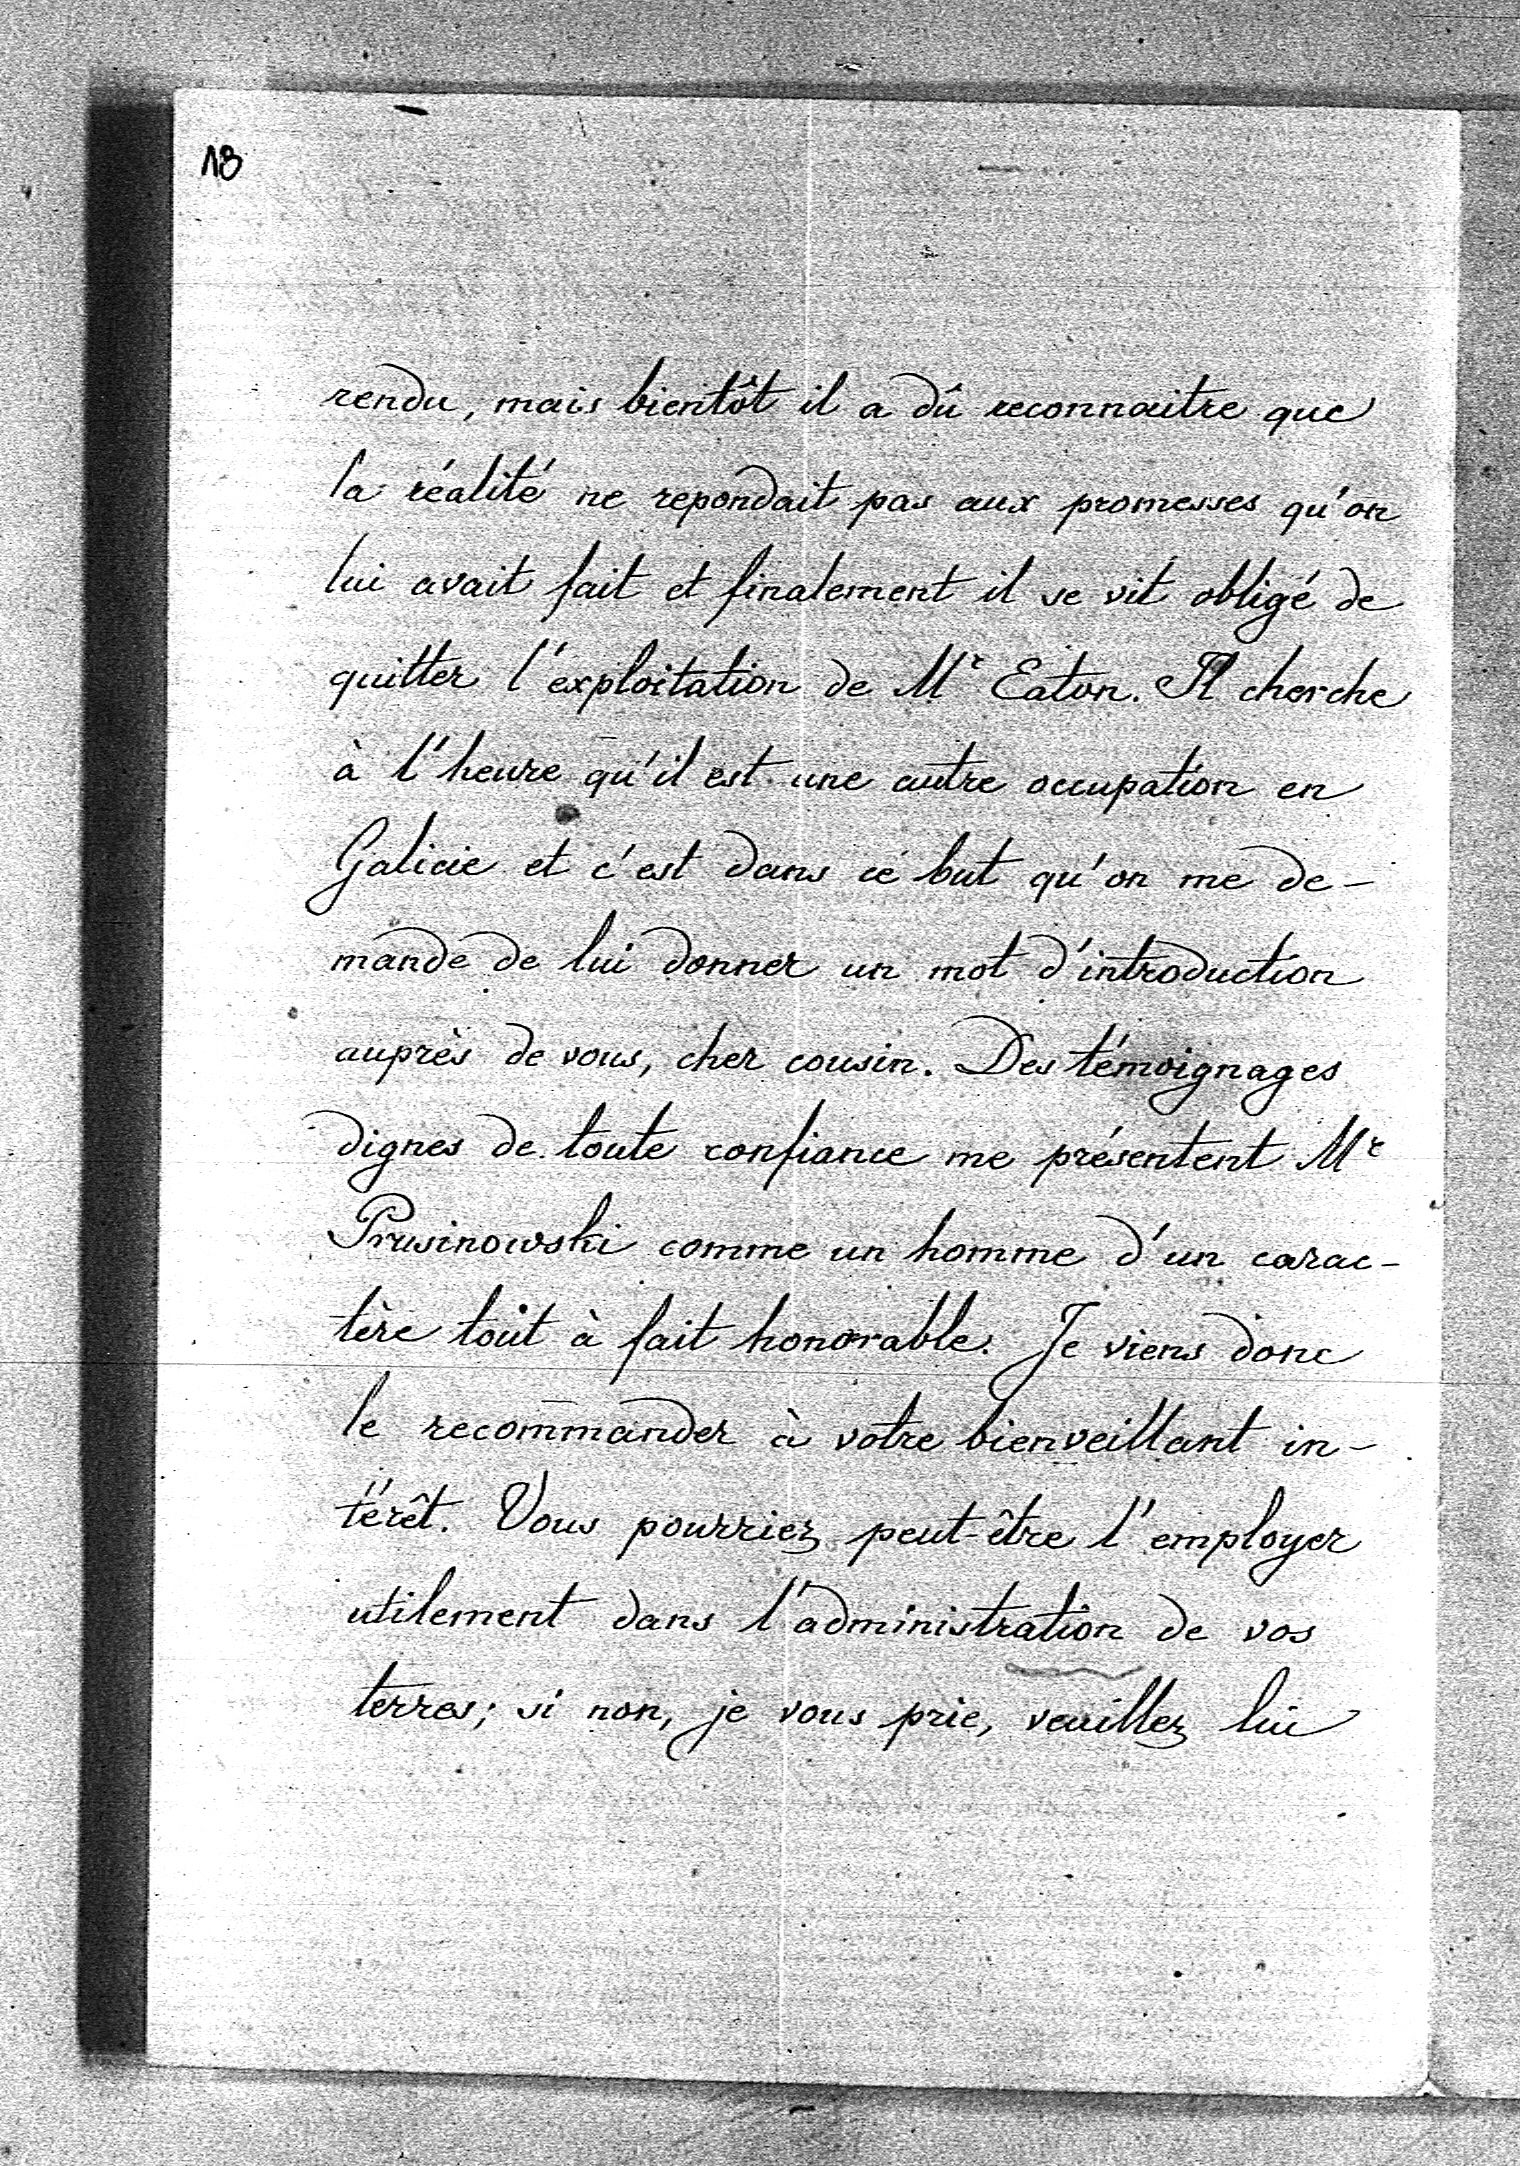 18
rendu, mais bientôt il a dû reconnaitre que
la réalité ne repondait pas aux promesses qu'on
lui avait fait et finalement il se vit obligé de
quitter l'exploitation de Mr Eaton. Il cherche
à l'heure qu'il est une autre occupation en
Galicie et c'est dans ce but qu'on me de-
mande de lui donner un mot d'introduction
auprès de vous, cher cousin. Des témoignages
dignes de toute confiance me présentent Mr
Prusinowski comme un homme d'un carac-
tère tout à fait honorable. Je viens donc
le recommander à votre bienveillant in-
térêt. Vous pourriez peut-être l'employer
utilement dans l'administration de vos
terres; si non, je vous prie, veuillez lui